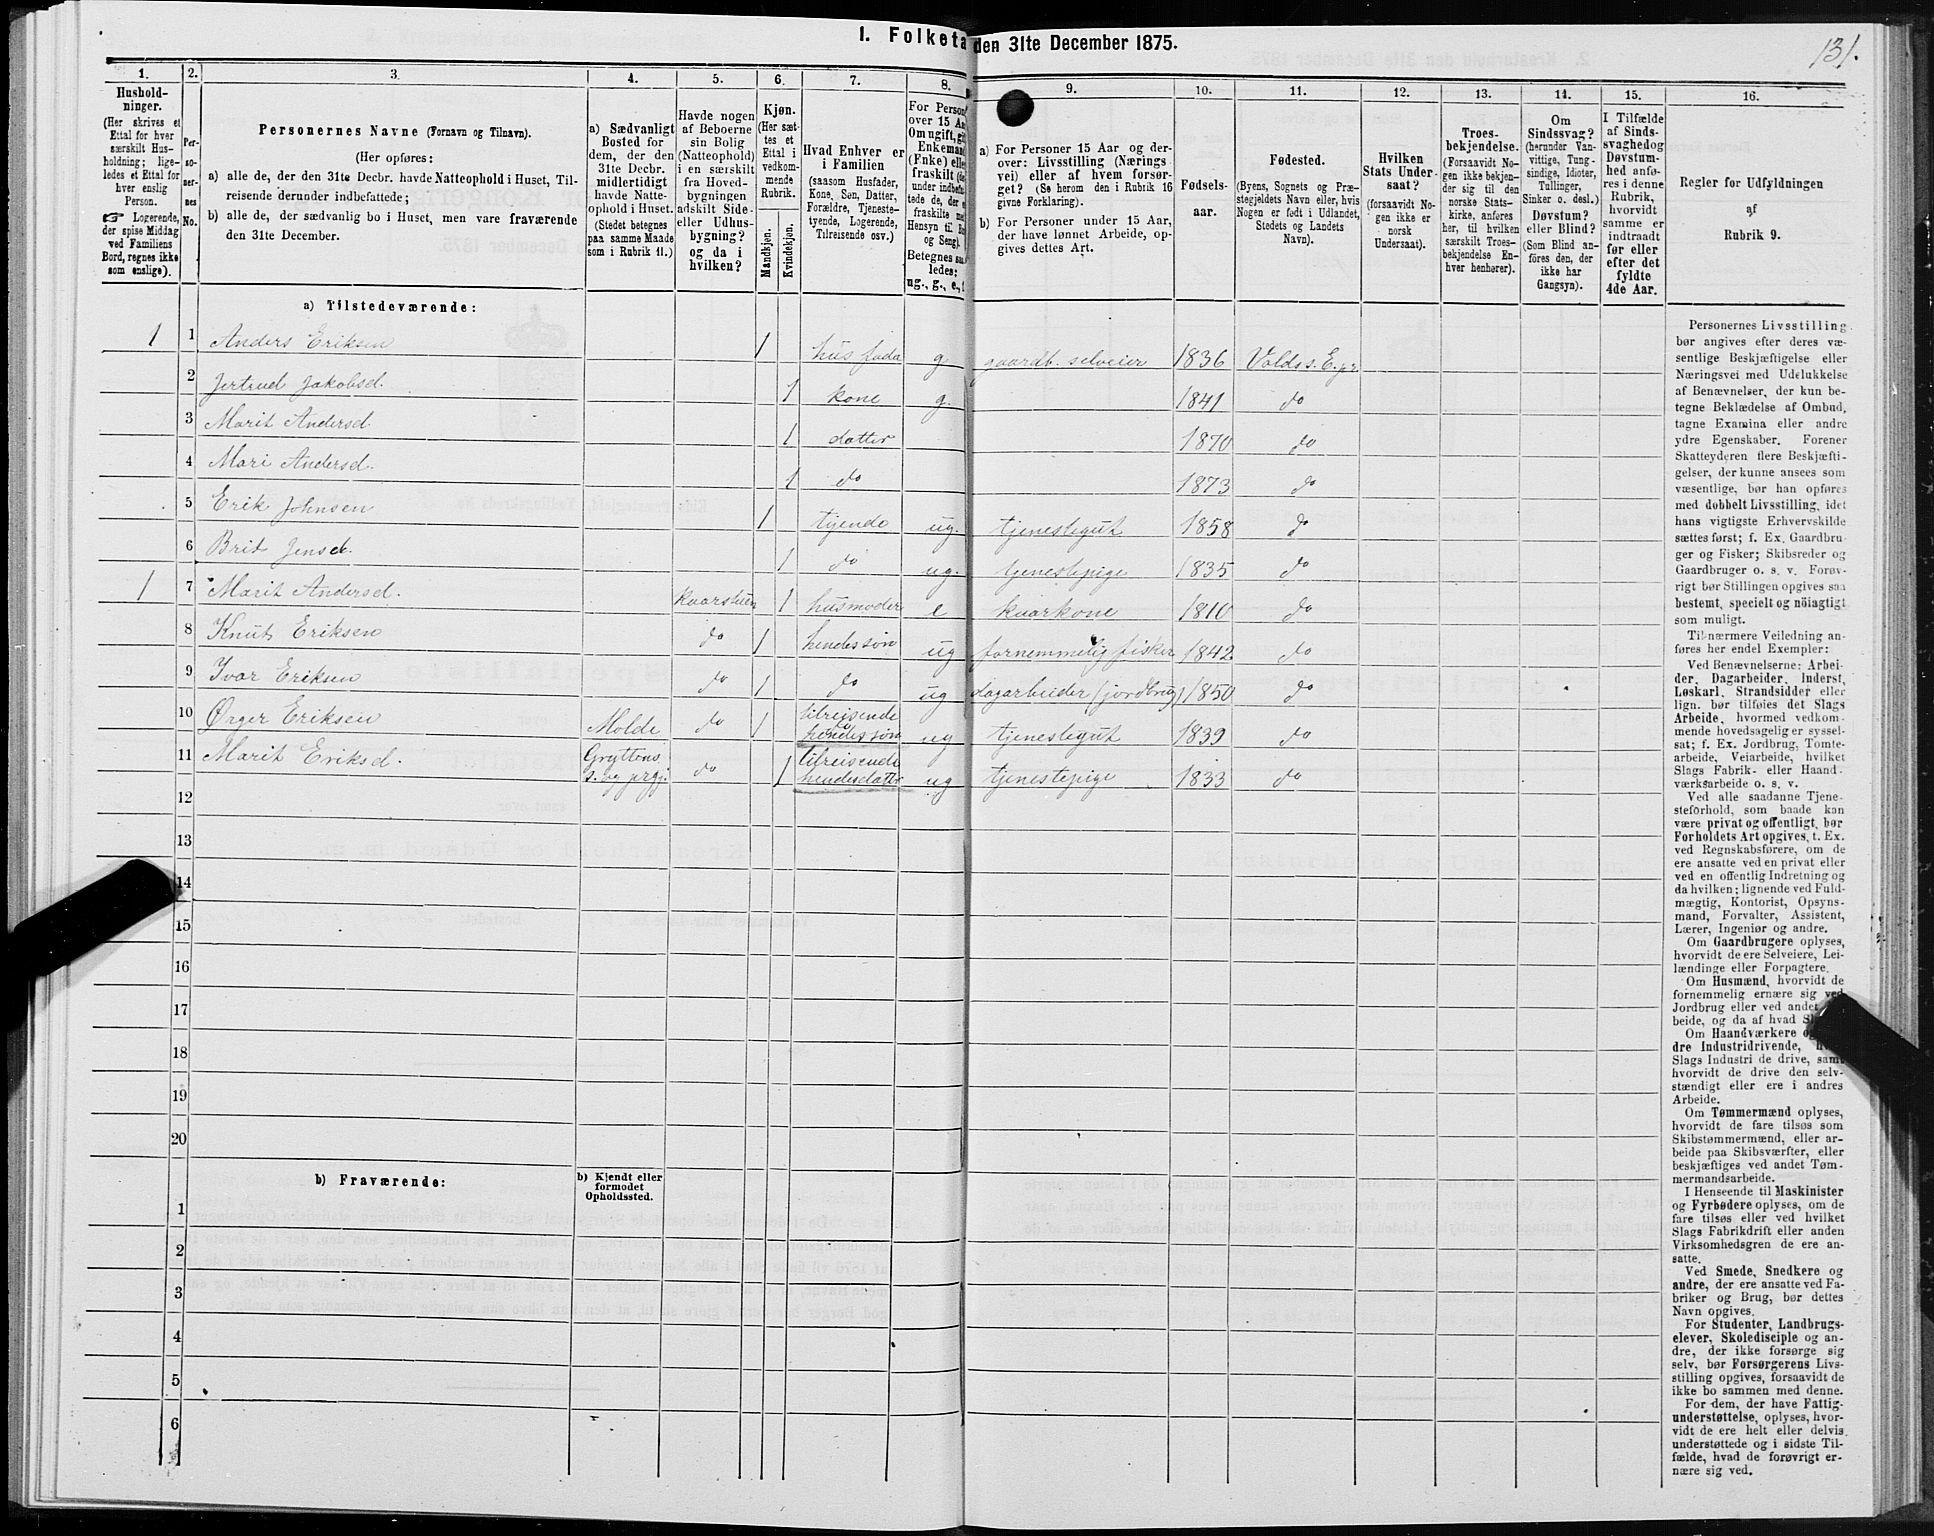 1. Folketa den 31te December 1875.
131.
1. 2. 3. 4. 5. 6. 7. 8. 9. 10. 11. 12. 13. 14. 15. 16.
Hushold-
ninger.
(Her skrives et
Ettal for hver
særskilt Hus-
holdning; lige-
ledes et Ettal for
hver enslig
Person.
Logerende,
der spise Middag
ved Familiens
Bord, regnes ikke
som enslige).
Per-
so-
ner-
nes
No.
Personernes Navne (Fornavn og Tilnavn).
(Her opføres:
a) alle de, der den 31te Decbr. havde Natteophold i Huset, Til-
reisende derunder indbefattede;
b) alle de, der sædvanlig bo i Huset, men vare fraværende
den 31te December.
a) Sædvanligt
Bosted for
dem, der den
31te Decbr.
midlertidigt
havde Natte-
ophold i Huset.
(Stedet betegnes
paa samme Maade
som i Rubrik 11.)
Havde nogen
af Beboerne
sin Bolig
(Natteophold)
i en særskilt
fra Hoved-
bygningen
adskilt Side-
eller Udhus-
bygning?
og da i
hvilken?
Kjøn.
(Her sæt-
tes et
Ettal i
vedkom-
mende
Rubrik.
Mandkjøn.
Kvindekjøn.
Hvad Enhver er
i Familien
(saasom Husfader,
Kone, Søn, Datter,
Forældre, Tjeneste-
tyende, Logerende,
Tilreisende osv.)
For Person
over 15 Aa
Om ugift, gi
Enkeman
(Fnke) elle
fraskilt (de
under indbefa
tede de, der e
fraskilte me
Hensyn til Bo
og Seng).
Betegnes saa
ledes:
ug., g., e., f
a) For Personer 15 Aar og der-
over: Livsstilling (Nærings-
vei) eller af hvem forsør-
get? (Se herom den i Rubrik 16
givne Forklaring).
b) For Personer under 15 Aar,
der have lønnet Arbeide, op-
gives dettes Art.
Fødsels-
aar.
Fødested.
(Byens, Sognets og Præ-
stegjeldets Navn eller, hvis
Nogen er født i Udlandet,
Stedets og Landets
Navn).
Hvilken
Stats Under-
saat?
(forsaavidt No-
gen ikke er
norsk
Undersaat).
Troes-
bekjendelse.
(Forsaavidt No-
gen ikke bekjen-
der sig til den
norske Stats-
kirke, anføres
her, til hvilken
særskilt Troes-
bekjendelse En-
hver henhører).
Om
Sindssvag?
(herunder Van-
vittige, Tung-
sindige, Idioter,
Tullinger,
Sinker o. desl.)
Døvstum?
eller Blind?
(Som Blind an-
føres den, der
ikke har
Gangsyn).
I Tilfælde
af Sinds-
svaghed og
Døvstum-
hed anfø-
res i denne
Rubrik,
hvorvidt
samme er
indtraadt
før eller
efter det
fyldte
4de Aar.
Regler for Udfyldningen
af
Rubrik 9.
a) Tilstedeværende:
1 1 Anders Eriksen 1 husfada g gaardb. selveier 1836 Voldss. E.pr.
2 Jertrud Jakobsd. 1 kone g. 1841 do
3 Marit Andersd. 1 datter 1870 do
4 Mari Andersd. 1 do 1873 do
5 Erik Johnsen 1 tyende ug. tjenestegut 1858 do
6 Brit Jensd. 1 do ug. tjenestepige 1835 do
1 7 Marit Andersd. 1 husmoder e kaarkone 1810 do
8 Knut Eriksen do 1 hendes søn ug fornemmelig fisker 1842 do
9 Ivar Eriksen do 1 do ug dagarbeider (jordbrug) 1850 do
10 Ørger Eriksen Molde do 1 tilreisende hendes søn ug tjenestegut 1839 do
11 Marit Eriksd. Gryttens s. og prgj do 1 tilreisende hendes datter ug tjenestepige 1833 do
12
13
14
15
16
17
18
19
20
b) Fraværende:
b) Kjendt eller
formodet
Opholdssted.
1
2
3
4
5
6
Personernes Livsstilling
bør angives efter deres væ-
sentlige Beskjæftigelse eller
Næringsvei med Udelukkelse
af Benævnelser, der kun be-
tegne Beklædelse af Ombud,
tagne Examina eller andre
ydre Egenskaber. Forener
Skatteyderen flere Beskjæfti-
gelser, der kunne ansees som
væsentlige, bør han opføres
med dobbelt Livsstilling, idet
hans vigtigste Erhvervskilde
sættes først; f. Ex. Gaardbru-
ger og Fisker; Skibsreder og
Gaardbruger o. s. v. Forøv-
rigt bør Stillingen opgives saa
bestemt, specielt og nöiagtigt
som muligt.
Til nærmere Veiledning an-
føres her endel Exempler:
Ved Benævnelserne: Arbei-
der, Dagarbeider, Inderst,
Løskarl, Strandsidder eller
lign. bør tilføies det Slags
Arbeide, hvormed vedkom-
mende hovedsagelig er syssel-
sat; f. Ex. Jordbrug, Tomte-
arbeide, Veiarbeide, hvilket
Slags Fabrik- eller Haand-
værksarbeide o. s. v.
Ved alle saadanne Tjene-
steforhold, som baade kan
være privat og offentligt, bør
Forholdets Art opgives, t. Ex.
ved Regnskabsførere, om de
ere ansatte ved en privat eller
ved en offentlig Indretning og
da hvilken; lignende ved Fuld-
mægtig, Kontorist, Opsyns-
mand, Forvalter, Assistent,
Lærer, Ingeniør og andre.
Om Gaardbrugere oplyses,
hvorvidt de ere Selveiere, Lei-
lændinge eller Forpagtere.
Om Husmænd, hvorvidt de
fornemmelig ernære sig ved
Jordbrug eller ved andet
beide, og da af hvad
Om Haandværkere
dre Industridrivende,
Slags Industri de drive, samt
hvorvidt de drive den selv-
stændigt eller ere i andres
Arbeide.
Om Tømmermænd oplyses,
hvorvidt de fare tilsøs som
Skibstømmermænd, eller ar-
beide paa Skibsværfter, eller
beskjæftiges ved andet Tøm-
mermandsarbeide.
I Henseende til Maskinister
og Fyrbødere oplyses, om de
fare tilsøs eller ved hvilket
Slags Fabrikdrift eller anden
Virksomhedsgren de ere an-
satte.
Ved Smede, Snedkere og
andre, der ere ansatte ved Fa-
briker og Brug, bør dettes
Navn opgives.
For Studenter, Landbrugs-
elever, Skoledisciple og an-
dre, der ikke forsørge sig
selv, bør Forsørgerens Livs-
stilling opgives, forsaavidt de
ikke bo sammen med denne.
For dem, der have Fattig-
understøttelse, oplyses, hvor-
vidt de ere helt eller delvis
understøttede og i sidste Til-
fælde, hvad de forøvrigt er-
nære sig ved.